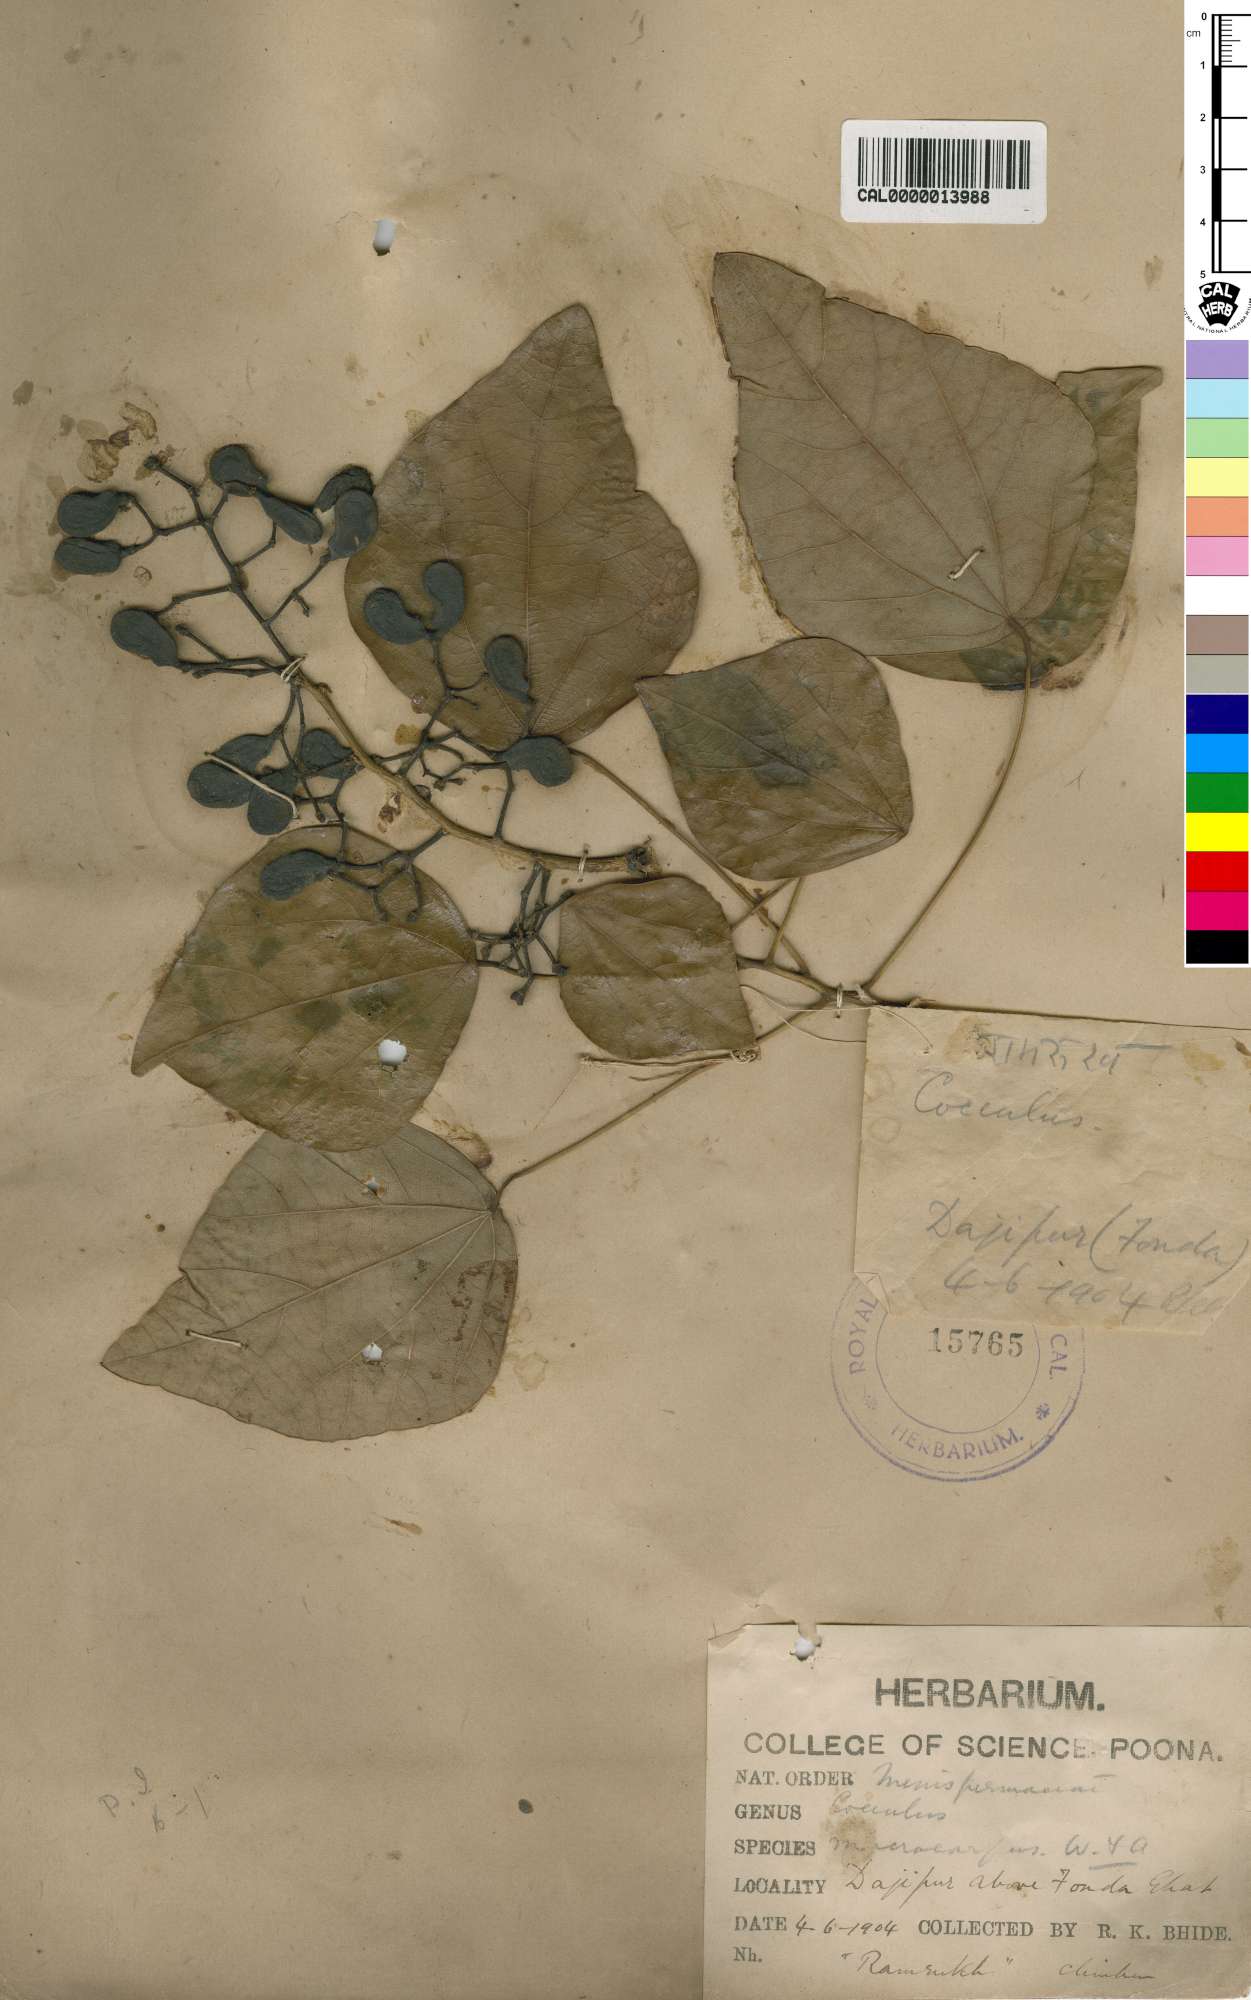 0
cm
1
2
3
4
5
CAL0000013988
CAL
HERB
CENTRAL NATIONAL HERBARIUM
Cocculus.
Dajipur (Fonda)
4-6-1904
15765
ROYAL
CAL.
HERBARIUM.
HERBARIUM.
COLLEGE OF SCIENCE. POONA.
NAT. ORDER Menispermaceae
GENUS Cocculus
SPECIES macrocarpus. W. & A
LOCALITY Dajipur above Fonda Ghat
DATE 4-6-1904 COLLECTED BY R. K. BHIDE.
Nh. "Ramrukh" climber